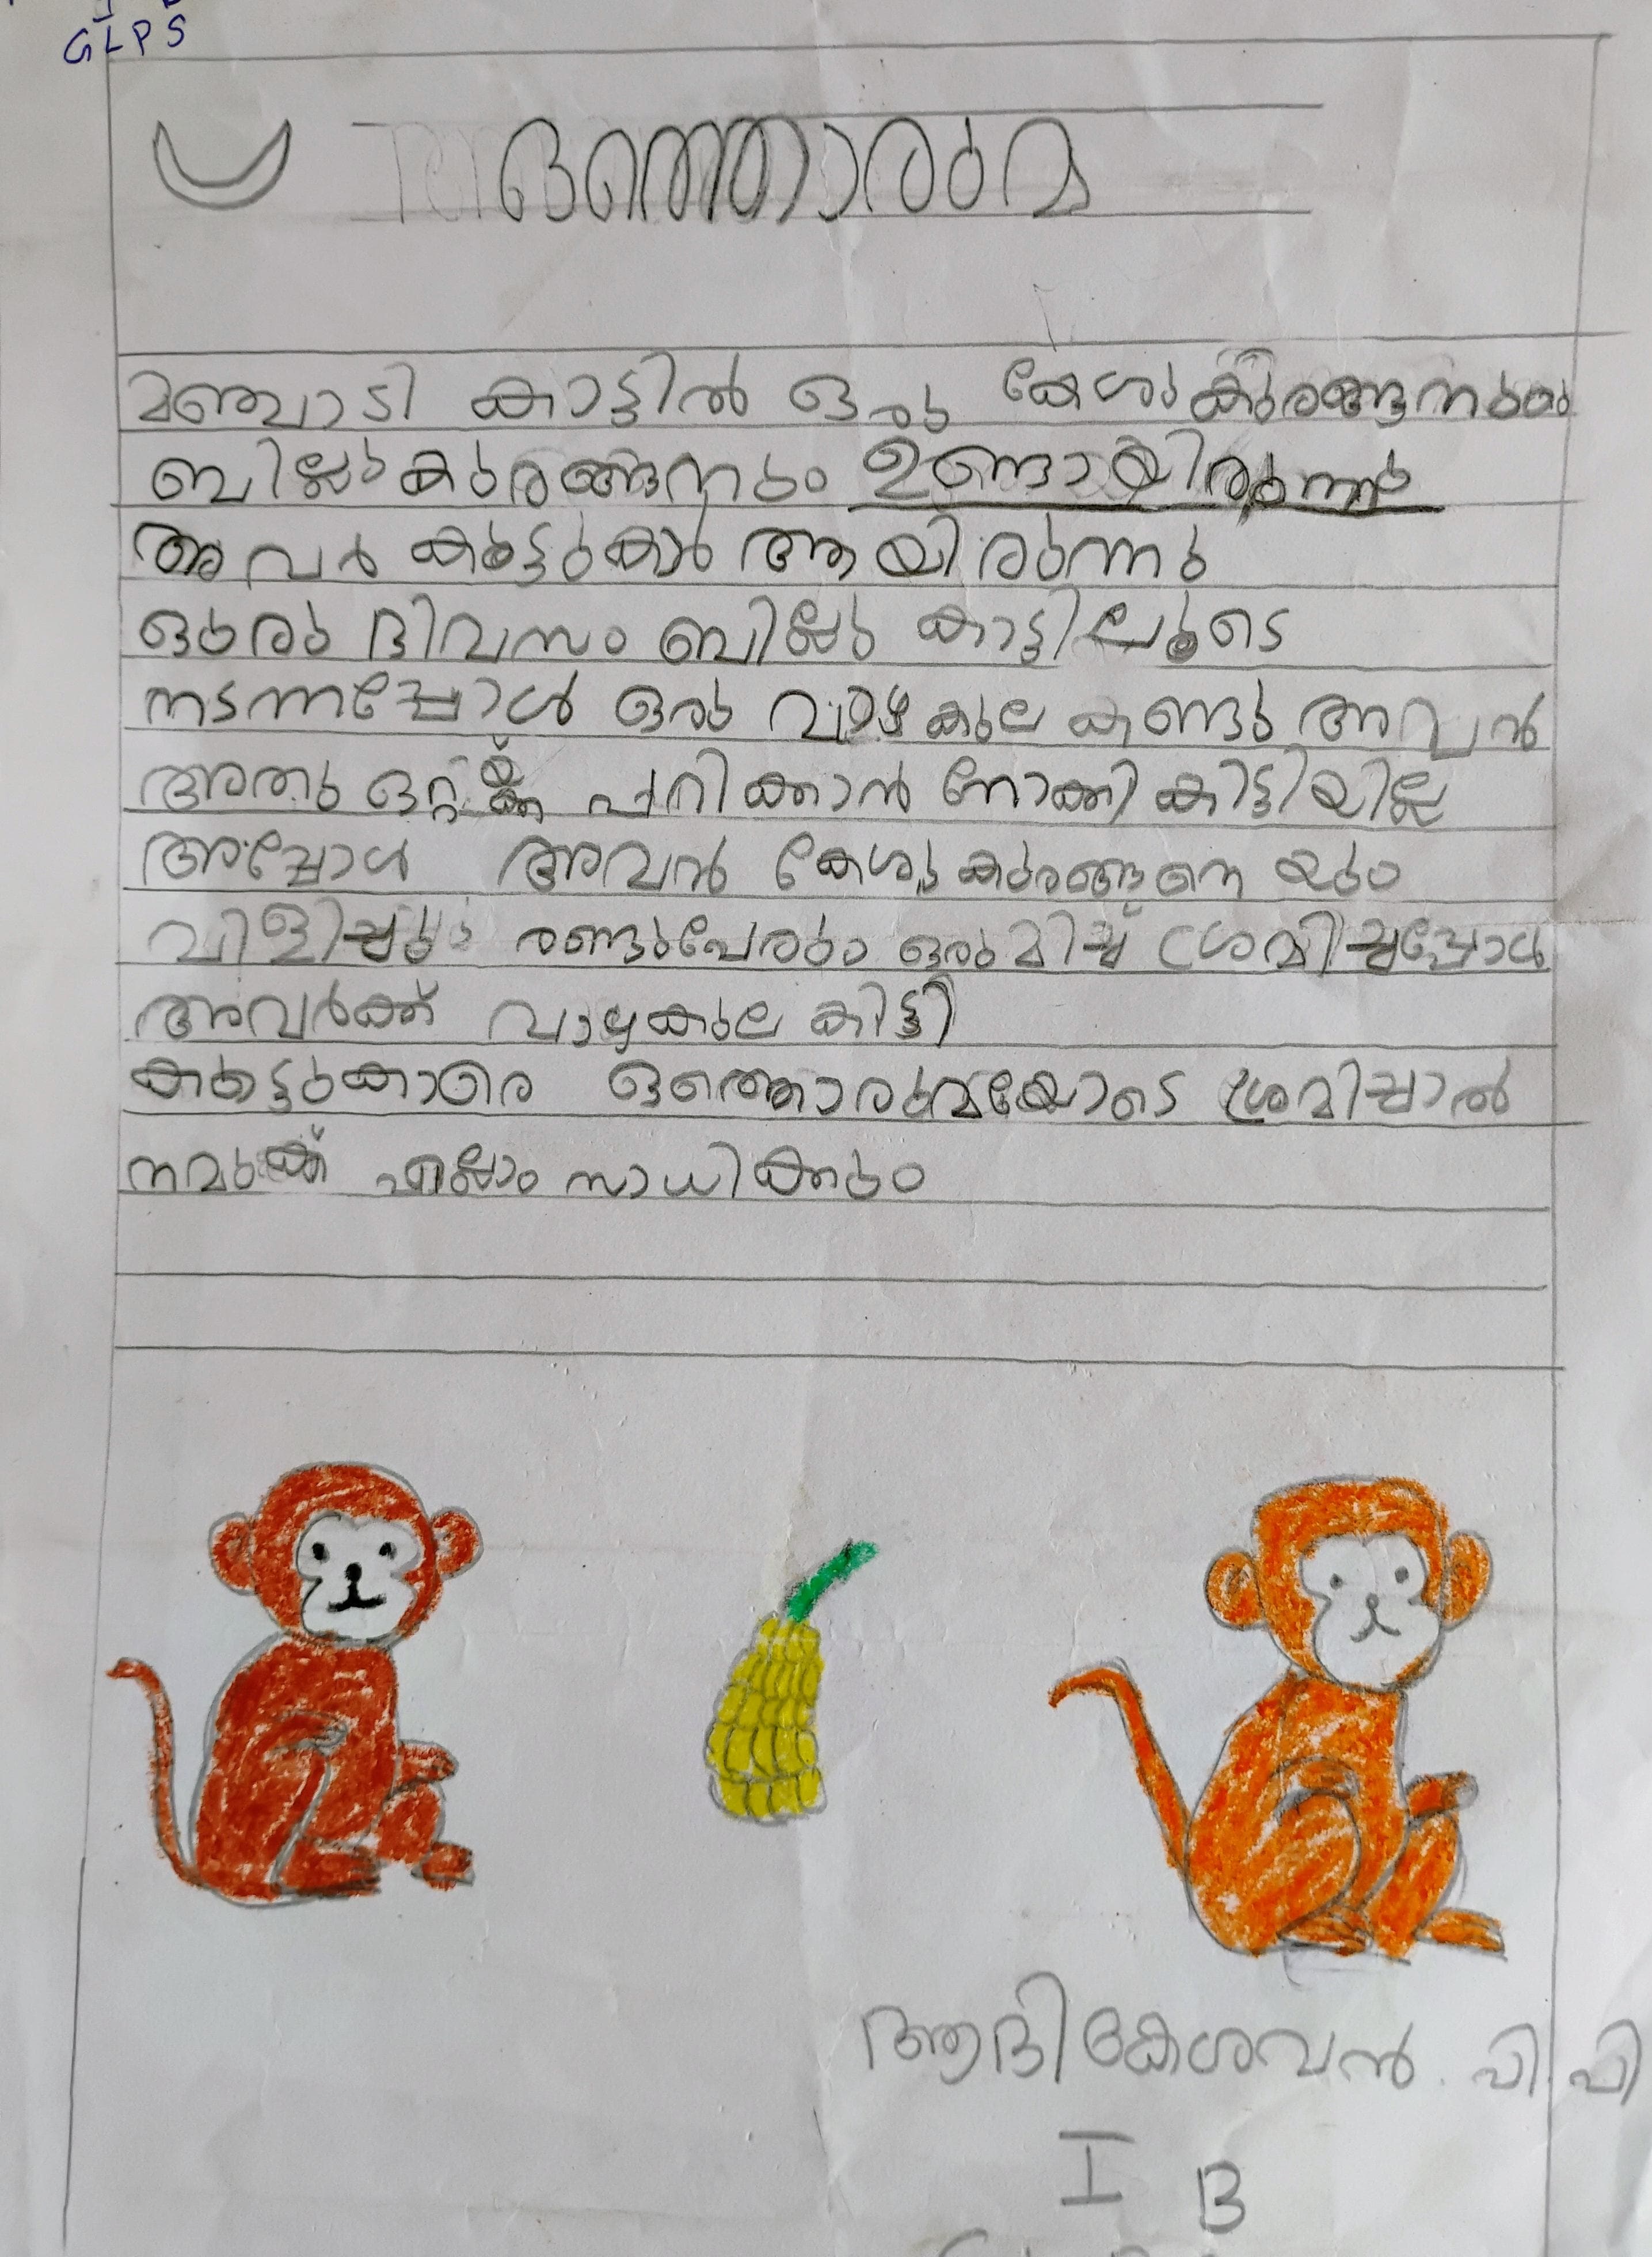 GLPS
ഒത്തൊരുമ
മഞ്ചാടി കാട്ടിൽ ഒരു കേശുകുരങ്ങനും
ബില്ലുകുരങ്ങനും ഉണ്ടായിരുന്നു
അവർ കൂട്ടുകാർ ആയിരുന്നു
ഒരു ദിവസം ബില്ലു കാട്ടിലൂടെ
നടന്നപ്പോൾ ഒരു വാഴകുല കണ്ടു അവൻ
അതു ഒറ്റയ്ക്ക് പറിക്കാൻ നോക്കി കിട്ടിയില്ല
അപ്പോൾ അവൻ കേശുകുരങ്ങനെ യും
വിളിച്ചു രണ്ടുപേരും ഒരുമിച്ച് ശ്രമിച്ചപ്പോൾ
അവർക്ക് വാഴകുല കിട്ടി
കൂട്ടുകാരെ ഒത്തൊരുമയോടെ ശ്രമിച്ചാൽ
നമുക്ക് എല്ലാം സാധിക്കും
ആദികേശവൻ. പി. പി
I B